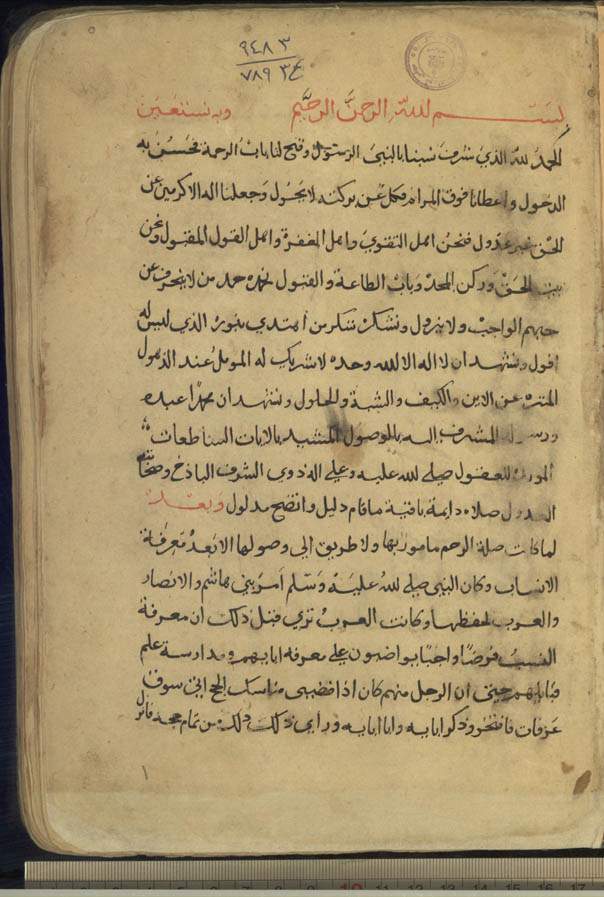 ٩٤٨٣
ع٣ ٧٨٩
بسم الله الرحمن الرحيم وبه نستعين
الحمد لله الذي شرف نسبنا بالنبي الرسول وفتح لنا باب الرحمة نحسن به
الدخول واعطانا فوق المرام فكل عن بركته لا يحول وجعلنا اله الاكرمين عن
الحق غير عدول فنحن اهل التقوي واهل المغفرة واهل القول المقبول ونحن
بيت الحق وركن المجد وباب الطاعة والقبول نحمده حمد من لا ينحرف عن
حبهم الواجب ولا يزول ونشكره شكر من اهتدي بنوره الذي ليس له
افول ونشهد ان لا اله الا الله وحده لا شريك له الموئل عند الذهول
المنزه عن الاين والكيف والشبه والحلول ونشهد ان محمدا عبده
ورسوله المشرف اليه بالوصول المشيد بالايات الساطعات
للعقول صلي الله عليه وعلي اله ذوي الشرف الباذخ وصحابته
العدول صلاه دايمة باقية ما قام دليل واتضح مدلول وبعد
لما كانت صلة الرحم مامور بها ولا طريق الي وصولها الا بعد معرفة
الانساب وكان النبي صلي لله عليه وسلم امر بني هاشم والانصار
والعرب لحفظها وكانت العرب تري قبل ذلك ان معرفة
النسب فرضا واجبا يواضبون علي معرفه ابايهم ومدارسة علم
قبايلهم حيتي ان الرجل منهم كان اذا قضيي مناسك الحج اتي سوق
عرفات فافتخر وذكر ابايه وابا ابايه وراي ذلك من تمام حجه فانزل
١